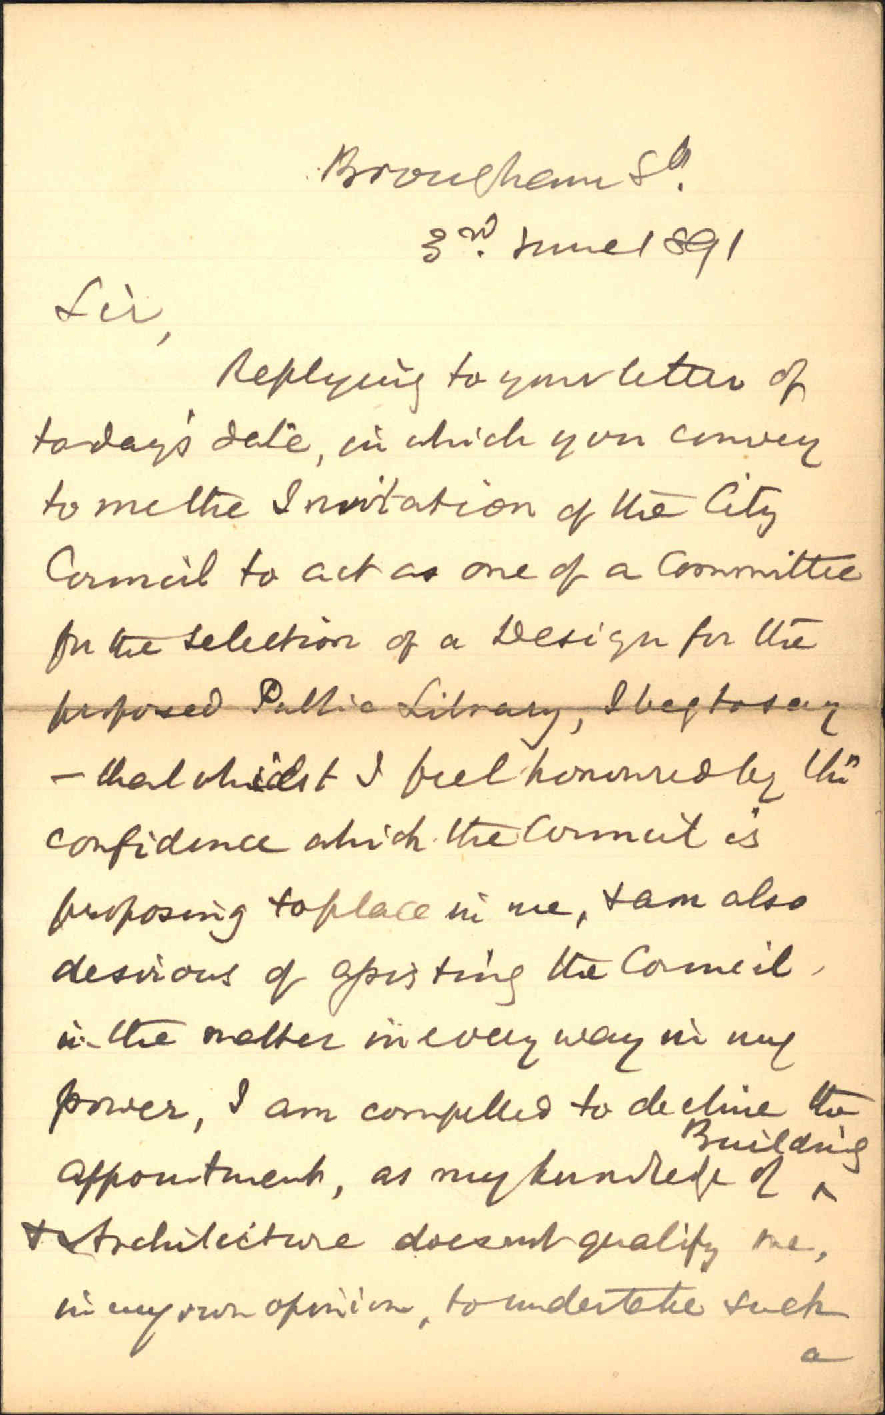 Brougham St.
3rd. June 1891
Sir,
Replying to your letter of
today's date, in which you convey
to me the Invitation of the City
Council to act as one of a Committee
for the selection of a Design for the
proposed Public Library, I beg to say
- that whilst I feel honoured by the
confidence which the Council is
proposing to place in me, & am also
desirous of assisting the Council
in the matter in every way in my
power, I am compelled to decline the
appointment, as my knowledge of ^ Building
& Architecture does not qualify me,
in my own opinion, to undertake such
a